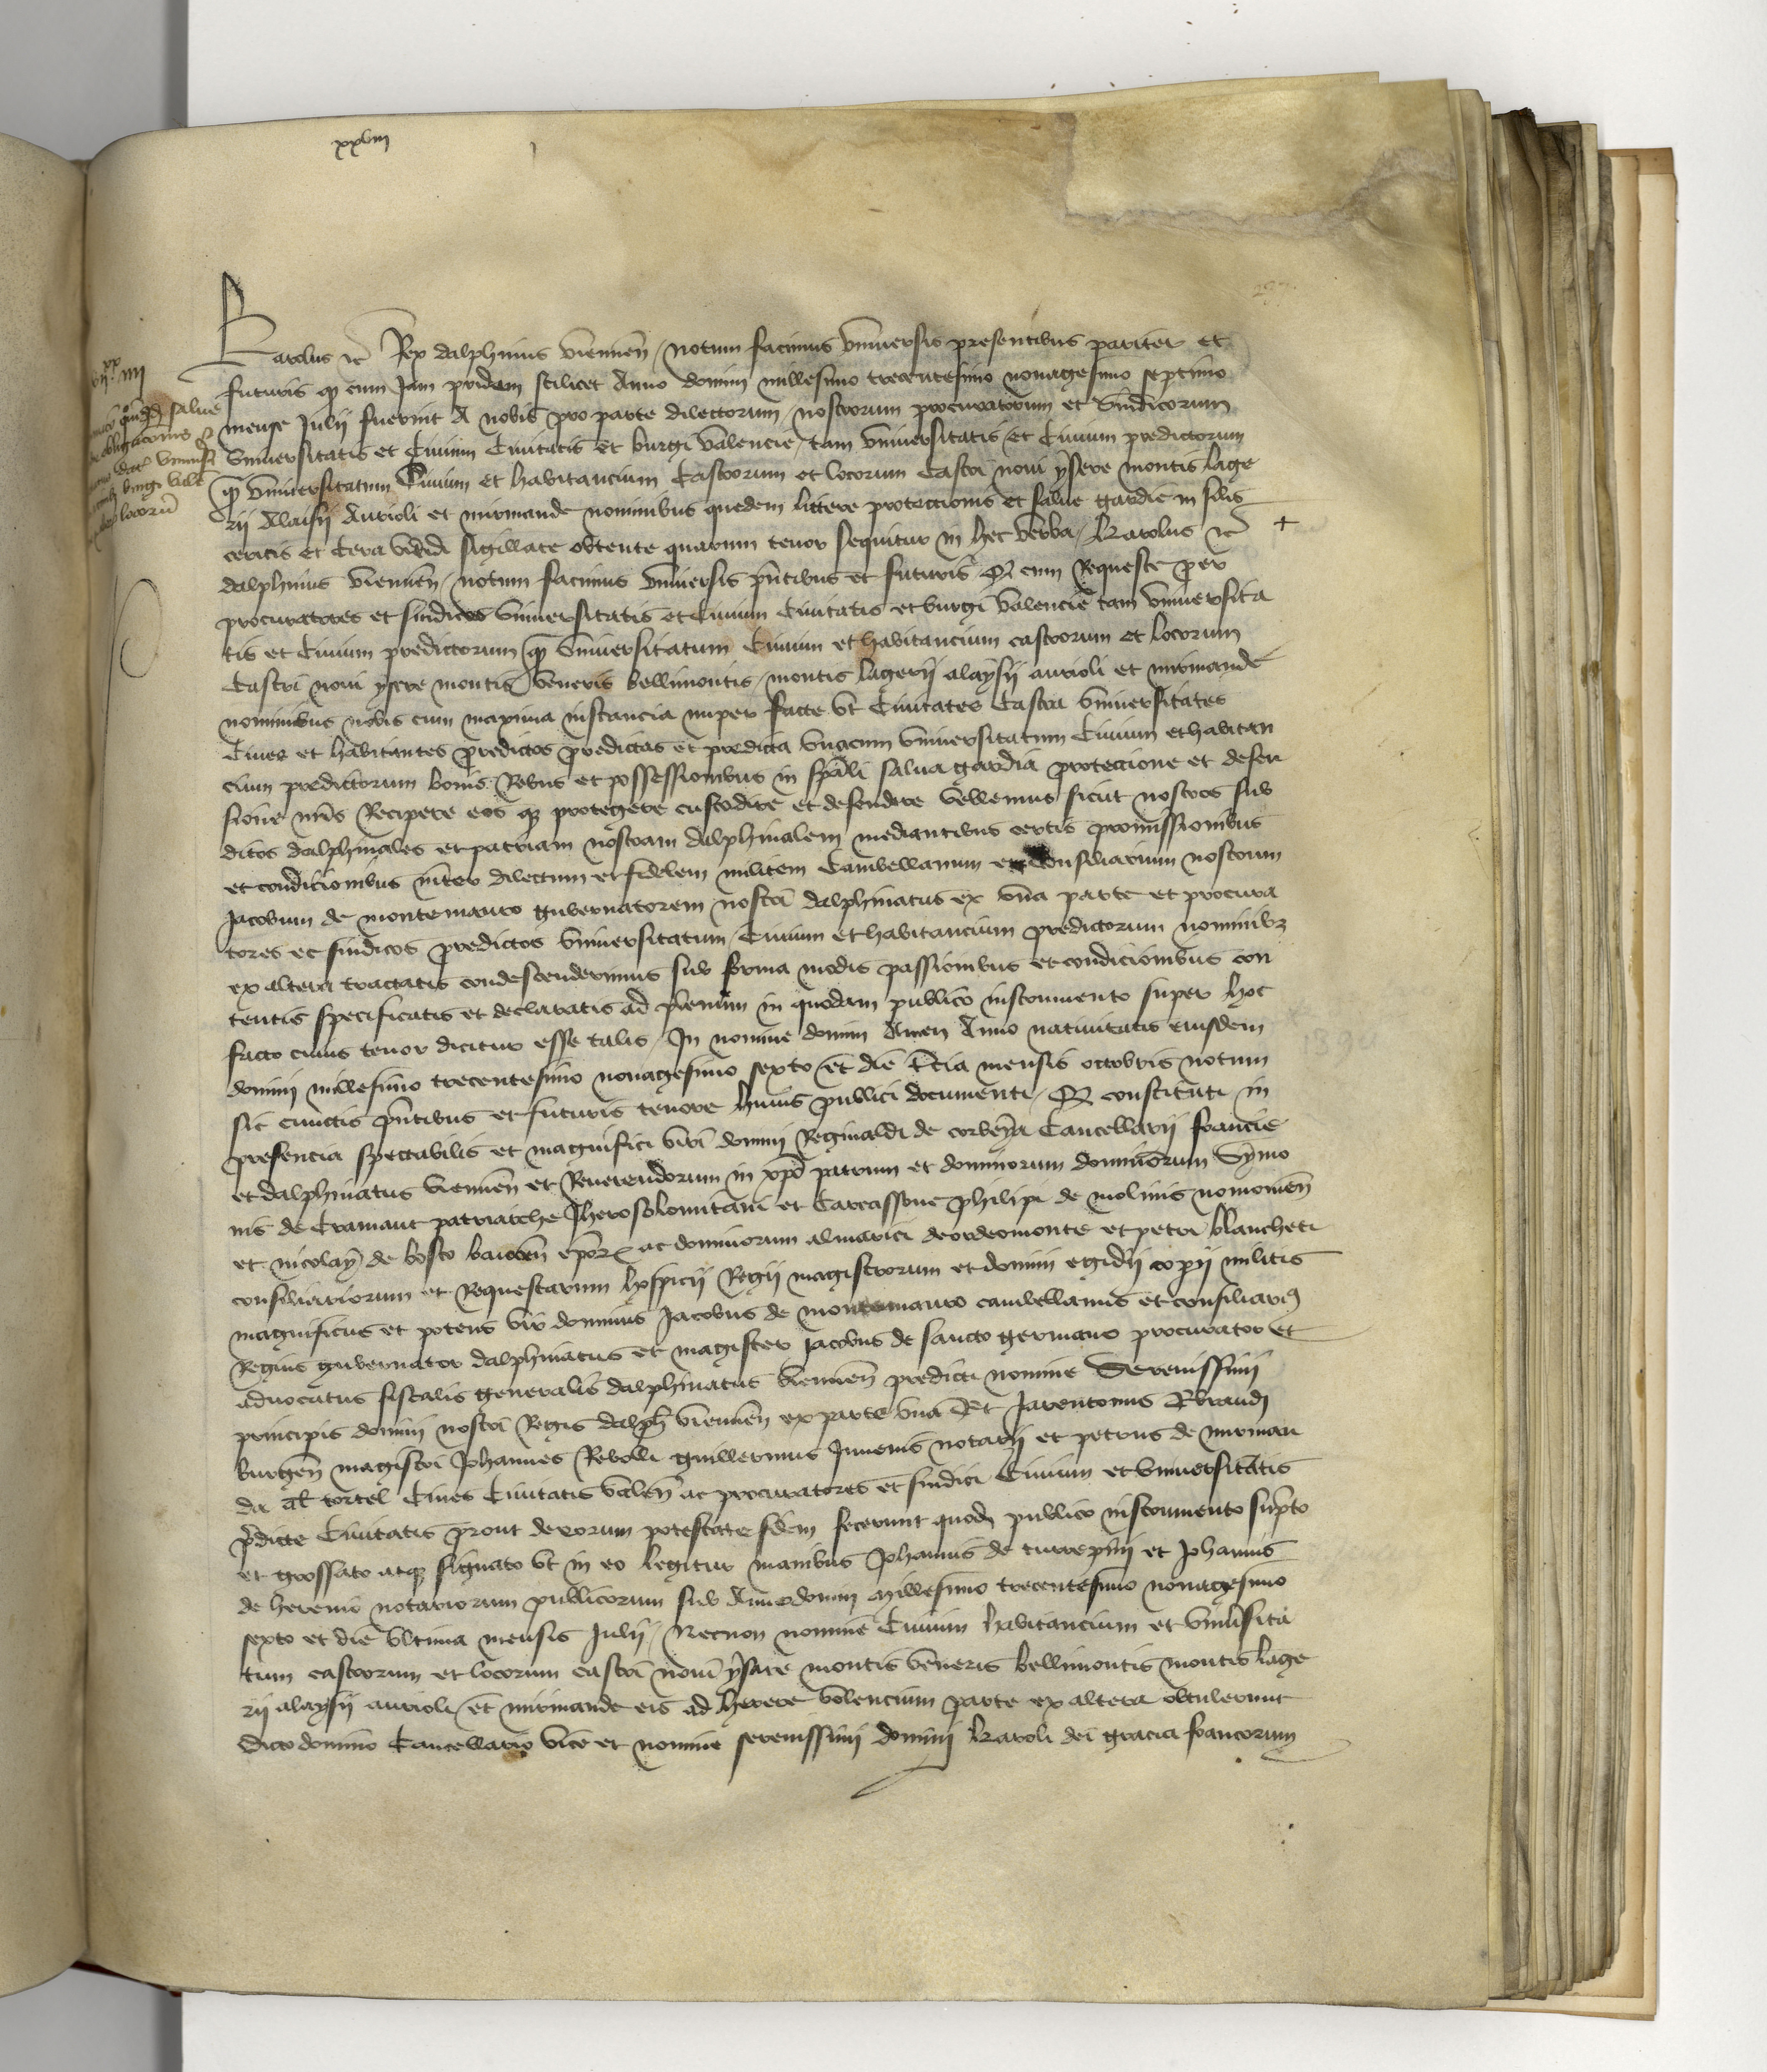 xxviii
Karolus etc̄ Rex dalphinus viennēn / notum facimus vniuersis presentibus pariter et
futuris qͥ cum Jam pridem scilicet Anno domini millesimo trecentesimo nonagesimo septimo
mense Julii fuerint A nobis pro parte dilectorum / nostrorum procuratorum et Sindicorum
vniuersitatis et Ciuium Ciuitatis et burgi valencie / tam vniuersitatis et Ciuium predictorum
qͣ vniuersitatum Ciuium et habitancium Castrorum et locorum Castri noui ysere montis lage
rij Alaisij Aurioli et mirmande nominibus quedem littere protectionis et salue gardie in filis
cericis et Cera viridi sigillate obtente quarum tenor sequitur in hec verba / Karolus etc̄
dalphinus viennēn / notum facimus vniuersis pn̄tibus et futuris Qͥ cum Requeste per
procuratores et sindicos vniuersitatis et Ciuium Ciuitatis et burgi valencie tam vniuersita
tis et Ciuium predictorum qͣ vniuersitatum Ciuium et habitancium castrorum et locorum
Castri noui ysere montis veneris bellimontis / montis lagerij alaysij aurioli et mirmande
nominibus nobis cum maxima instancia nuper facte vt Ciuitates Castra vniuersitates
Ciues et habitantes predictos predictas et predicta vnacum vniuersitatum Ciuium et habitan
cium predictorum bonis Rebus et possessionibus in sp̄ali salua gardia protectione et defen
sione nr̄is Recipere eos qͣ protegere custodire et defendere vellemus sicut nostros sub
ditos dalphinales et patriam nostram dalphinalem mediantibus certis promissionibus
et condicionibus inter dilectum et fidelem militem Cambellanum et Consiliarium nostrum
Jacobum de montemauro gubernatorem nostri dalphinatus ex vna parte et procura
tores et sindicos predictos vniuersitatum / Ciuium et habitancium predictorum nominibꝫ
ex altera tractatis condescenderimus sub forma modis passionibus et condicionibus con
tentis specificatis et declaratis ad plenum in quodam publico instrumento super hoc
facto cuius tenor dicitur esse talis / In nomine domini Amen Anno natiuitatis eiusdem
domini millesimo trecentesimo nonagesimo sexto et die t̄cia mensis octobris notum
sit cunctis pn̄tibus et futuris tenore huius publici documenti / Qͥ constituti in
presencia spectabilis et magnifici viri domini Reginaldi de corbeya Cancellarij francie
et dalphinatus viennēn et Reuerendorum in xp̄o patrum et dominorum dominorum Symo
nis de Cramaut patriarche Jherosolomitani et Carcassone philipi de molinis nomomēn
et nicolay de bosco baiocēn ep̄orꝝ ac dominorum almarici de ordeomonte et petri blancheti
consiliariorum et Requestarum hospicij Regij magistrorum et domini egidij copij militis
magnificus et potens vir dominus Jacobus de montemauro cambellanus et consiliariꝰ
Regius gubernator dalphinatus et magister Jacobus de sancto germano procurator et
aduocatus fiscalis generalis dalphinatus viennēn predicti nomine Serenissimi
principis domini nostri Regis dalph̄ viennēn ex parte vna Et Jarentonus
burgēn magistri Johannes Rebolli guillermus Juuenis notarij et petrus de mirman
da al̄ tortel Ciues Ciuitatis valēn ac procuratores et sindici Ciuium et vniuersitatis
p̄dicte Ciuitatis prout de eorum potestate fidem fecerunt quodꝫ publico instrumento sup̄to
et grossato atqꝫ signato vt in eo legitur manibus Johannis de turrepinj et Johannis
de heremo notariorum publicorum sub Anno domini millesimo trecentesimo nonagesimo
sexto et die vltima mensis Julij / Necnon nomine Ciuium habitancium et vniu̅sita
tum castrorum et locorum castri noui ysare montis veneris bellimontis montis lage
rij alaysij aurioli / et mirmande eis ad herere volencium parte ex altera obtulerunt
dicto domino Cancellario vice et nomine serenissimi domini Karoli dei gracia francorum